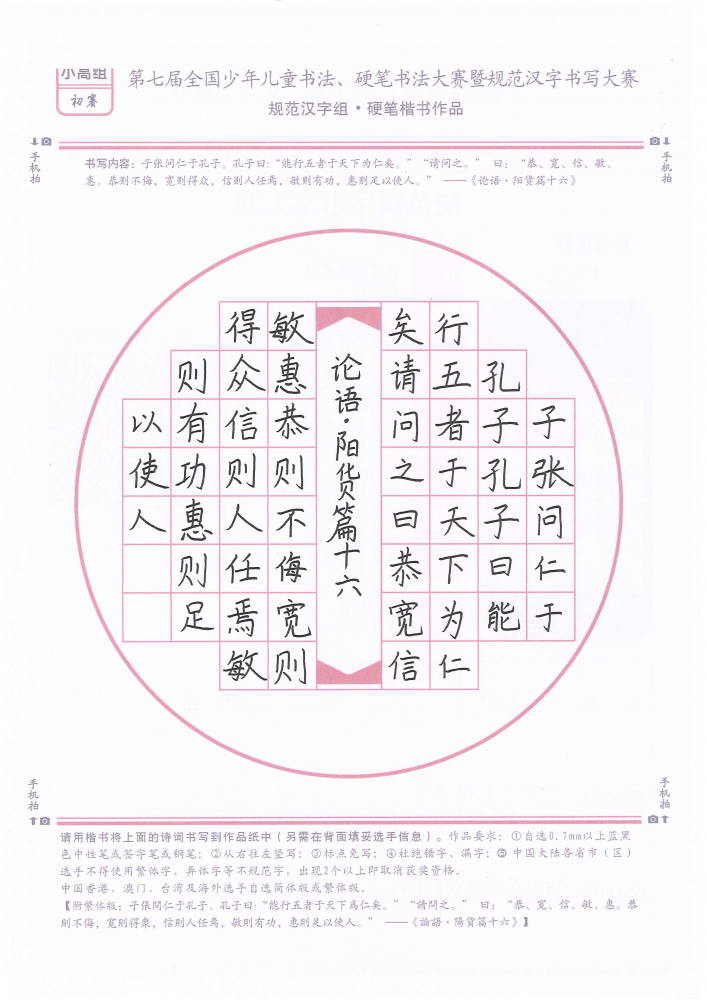 小高组
初赛
第七届全国少年儿童书法、硬笔书法大赛暨规范汉字书写大赛
规范汉字组·硬笔楷书作品
手机拍
手机拍
书写内容:子张问仁于孔子。孔子曰:“能行五者于天下为仁矣。”“请问之。” 曰:“恭、宽、信、敏、
惠。恭则不侮,宽则得众,信则人任焉,敏则有功,惠则足以使人。” ——《论语·阳货篇十六》
子张问仁于
孔子孔子曰能
行五者于天下为仁
矣请问之曰恭宽信
论语·阳货篇十六
敏惠恭则不侮宽则
得众信则人任焉敏
则有功惠则足
以使人
手机拍
手机拍
请用楷书将上面的诗词书写到作品纸中(另需在背面填妥选手信息)。作品要求:①自选0.7mm以上蓝黑
色中性笔或签字笔或钢笔;②从右往左竖写;③标点免写;④杜绝错字、漏字;⑤中国大陆各省市(区)
选手不得使用繁体字、异体字等不规范字,出现2个以上即取消获奖资格。
中国香港、澳门、台湾及海外选手自选简体版或繁体版。
【附繁体版:子張問仁于孔子。孔子曰:“能行五者于天下爲仁矣。”“請問之。” 曰:“恭、寬、信、敏、惠。恭
則不侮,寬則得衆,信則人任焉,敏則有功,惠則足以使人。” ——《論語·陽貨篇十六》】